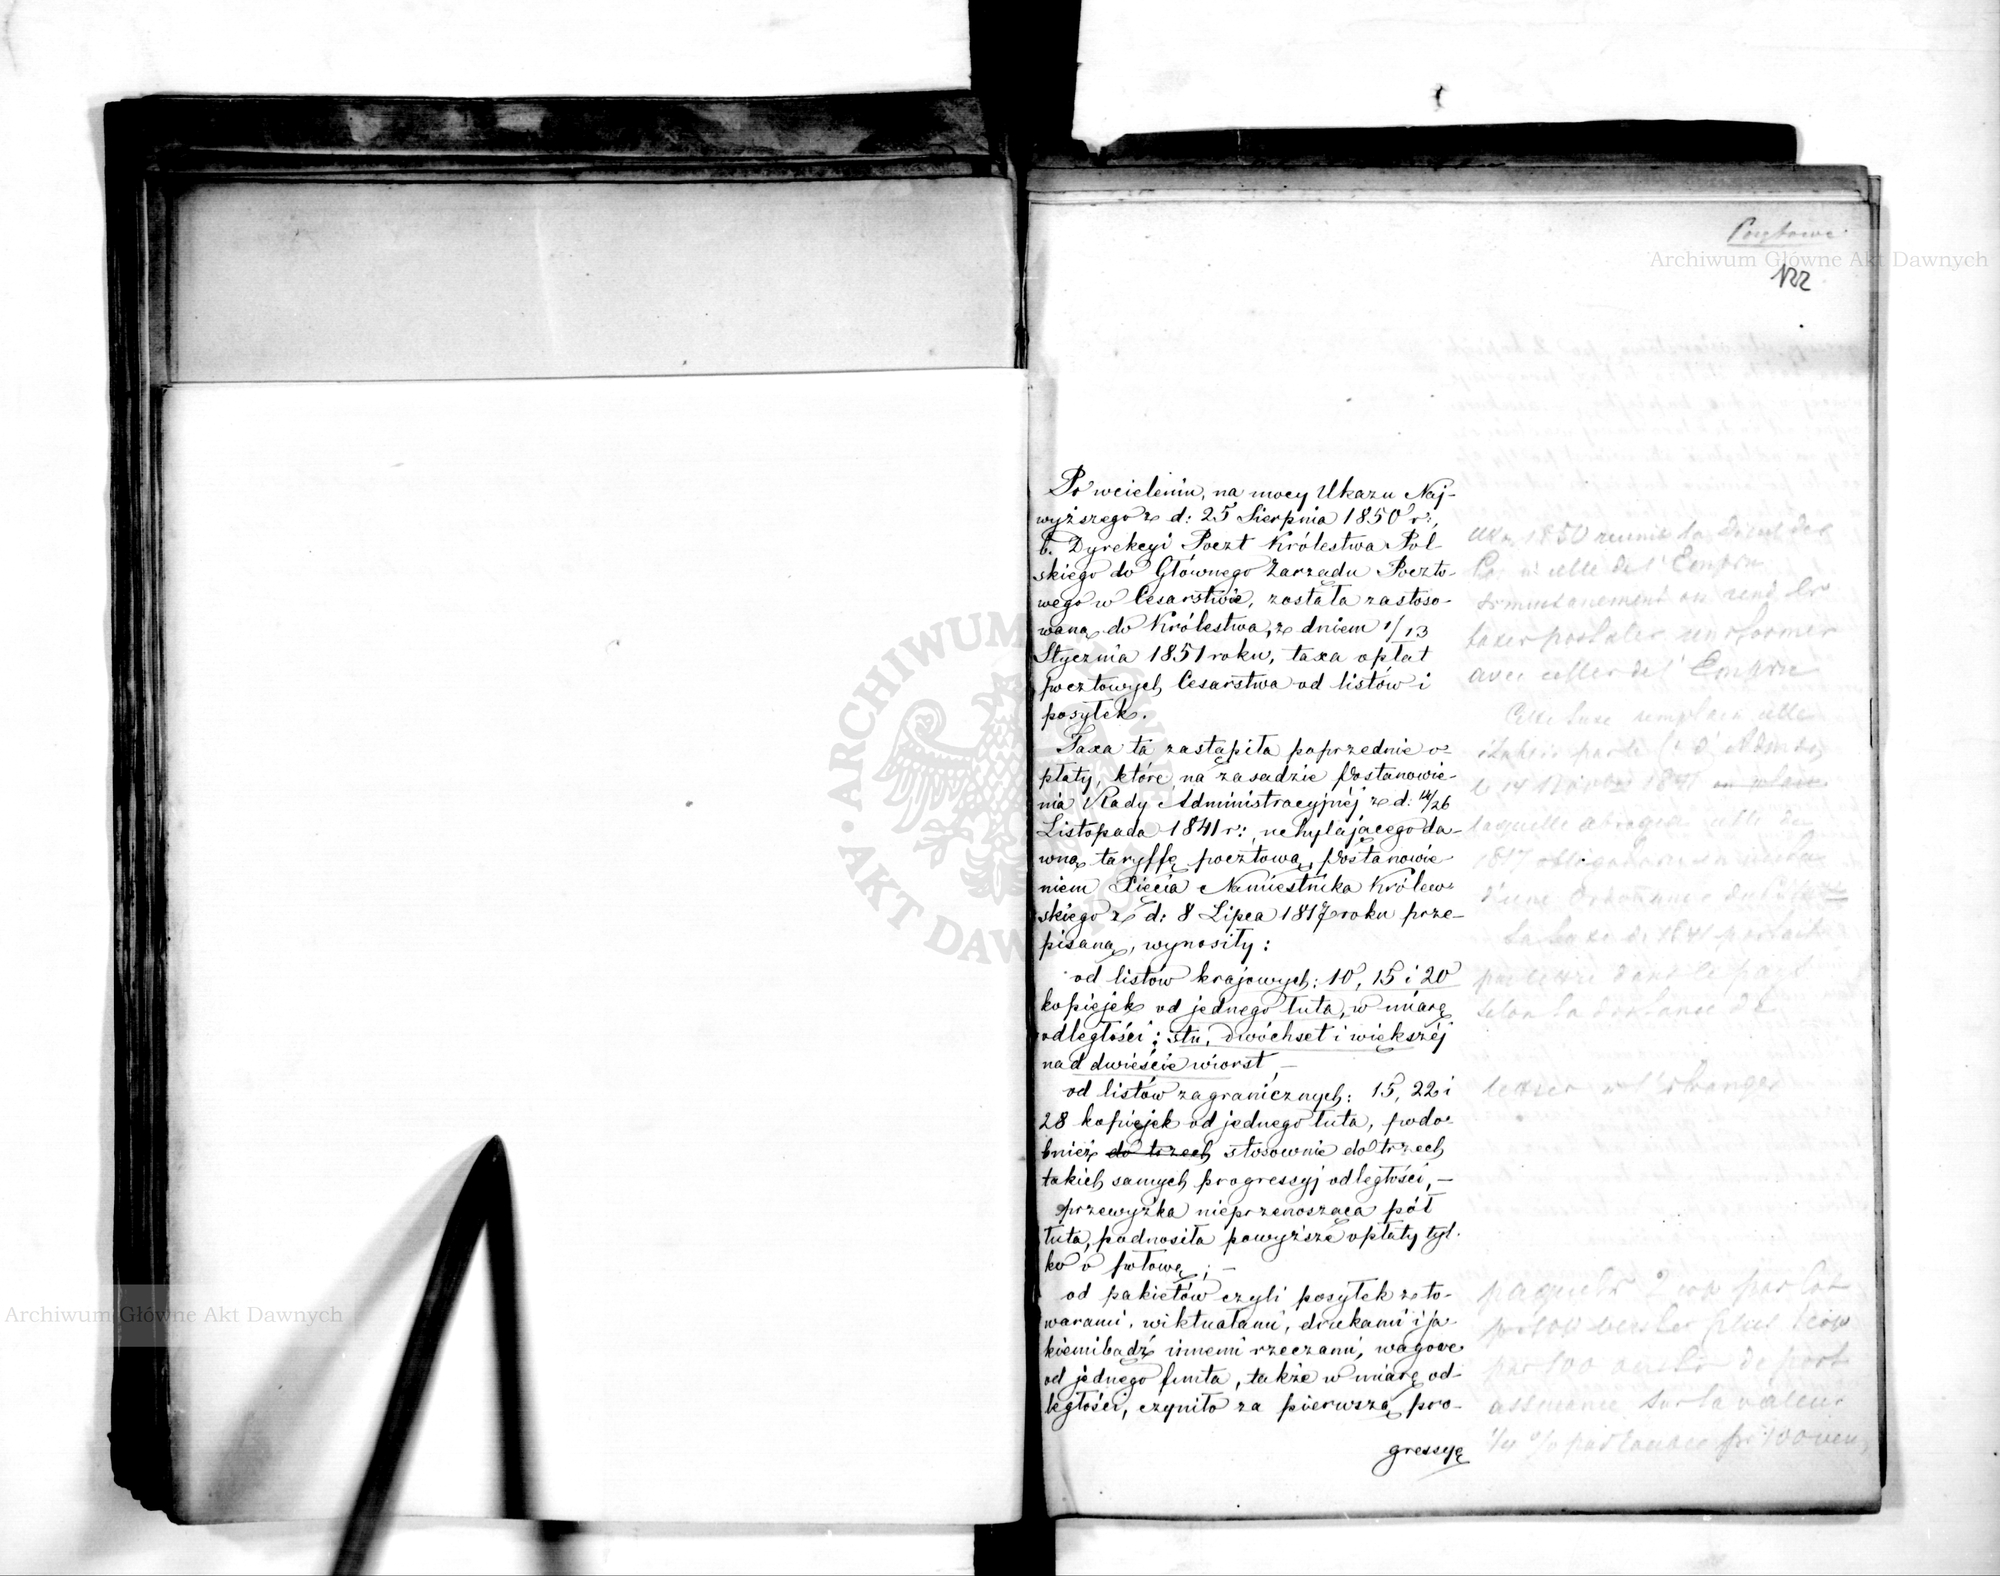 Pocztowe
Archiwum Główne Akt Dawnych
122
Po wcieleniu, na mocy Ukazu Naj-
wyższego z d: 25 Sierpnia 1850 r.,
b. Dyrekcyi Poczt Królestwa Pol-
skiego do Głównego Zarządu Poczto-
wego w Cesarstwie, została zastoso-
waną do Królestwa, z dniem 1/13
Stycznia 1851 roku, taxa opłat
pocztowych Cesarstwa od listów i
posyłek.
Taxa ta zastąpiła poprzednie o-
płaty, które na zasadzie Postanowie-
nia Rady Administracyjnéj z d: 14/26
Listopada 1841 r: uchylającego da-
wną taryffę pocztową, Postanowie-
niem Xięcia Namiestnika Królew-
skiego z d: 8 Lipca 1817 roku prze-
pisaną, wynosiły:
od listów krajowych: 10, 15 i 20
kopiejek od jednego łuta, w miarę
odległości; stu, dwóchset i większéj
nad dwieście wiorst, —
od listów zagranicznych: 15, 22 i
28 kopiejek od jednego łuta, podo-
bnież do trzech stosownie do trzech
takich samych progressyj odległości, —
przewyżka nieprzenosząca pół
łuta, podnosiła powyższe opłaty tyl-
ko o połowę; —
od pakietów czyli posyłek z to-
warami, wiktuałami, drukami i ja-
kiemibądź innemi rzeczami, wagowe
od jednego funta, także w miarę od-
ległości, czyniło za pierwszą pro-
gressyę
1850 réunit la Direct des
à celle de l'Empire
simultanément on rend les
taxes postales uniformes
avec celles de l'Empire
Cette taxe remplace celle
le 14 Novbre 1841
laquelle abrogea celle de
1817
d'une Ordonnance du
La taxe de 1841 portait
dans le pays
selon la distance de
lettres à l'étranger
paquets 2 cop par lot
par 100 verstes plus
par 100 verstes de port
assurance sur la valeur
ARCHIWUM GŁÓWNE AKT DAWNYCH
Archiwum Główne Akt Dawnych